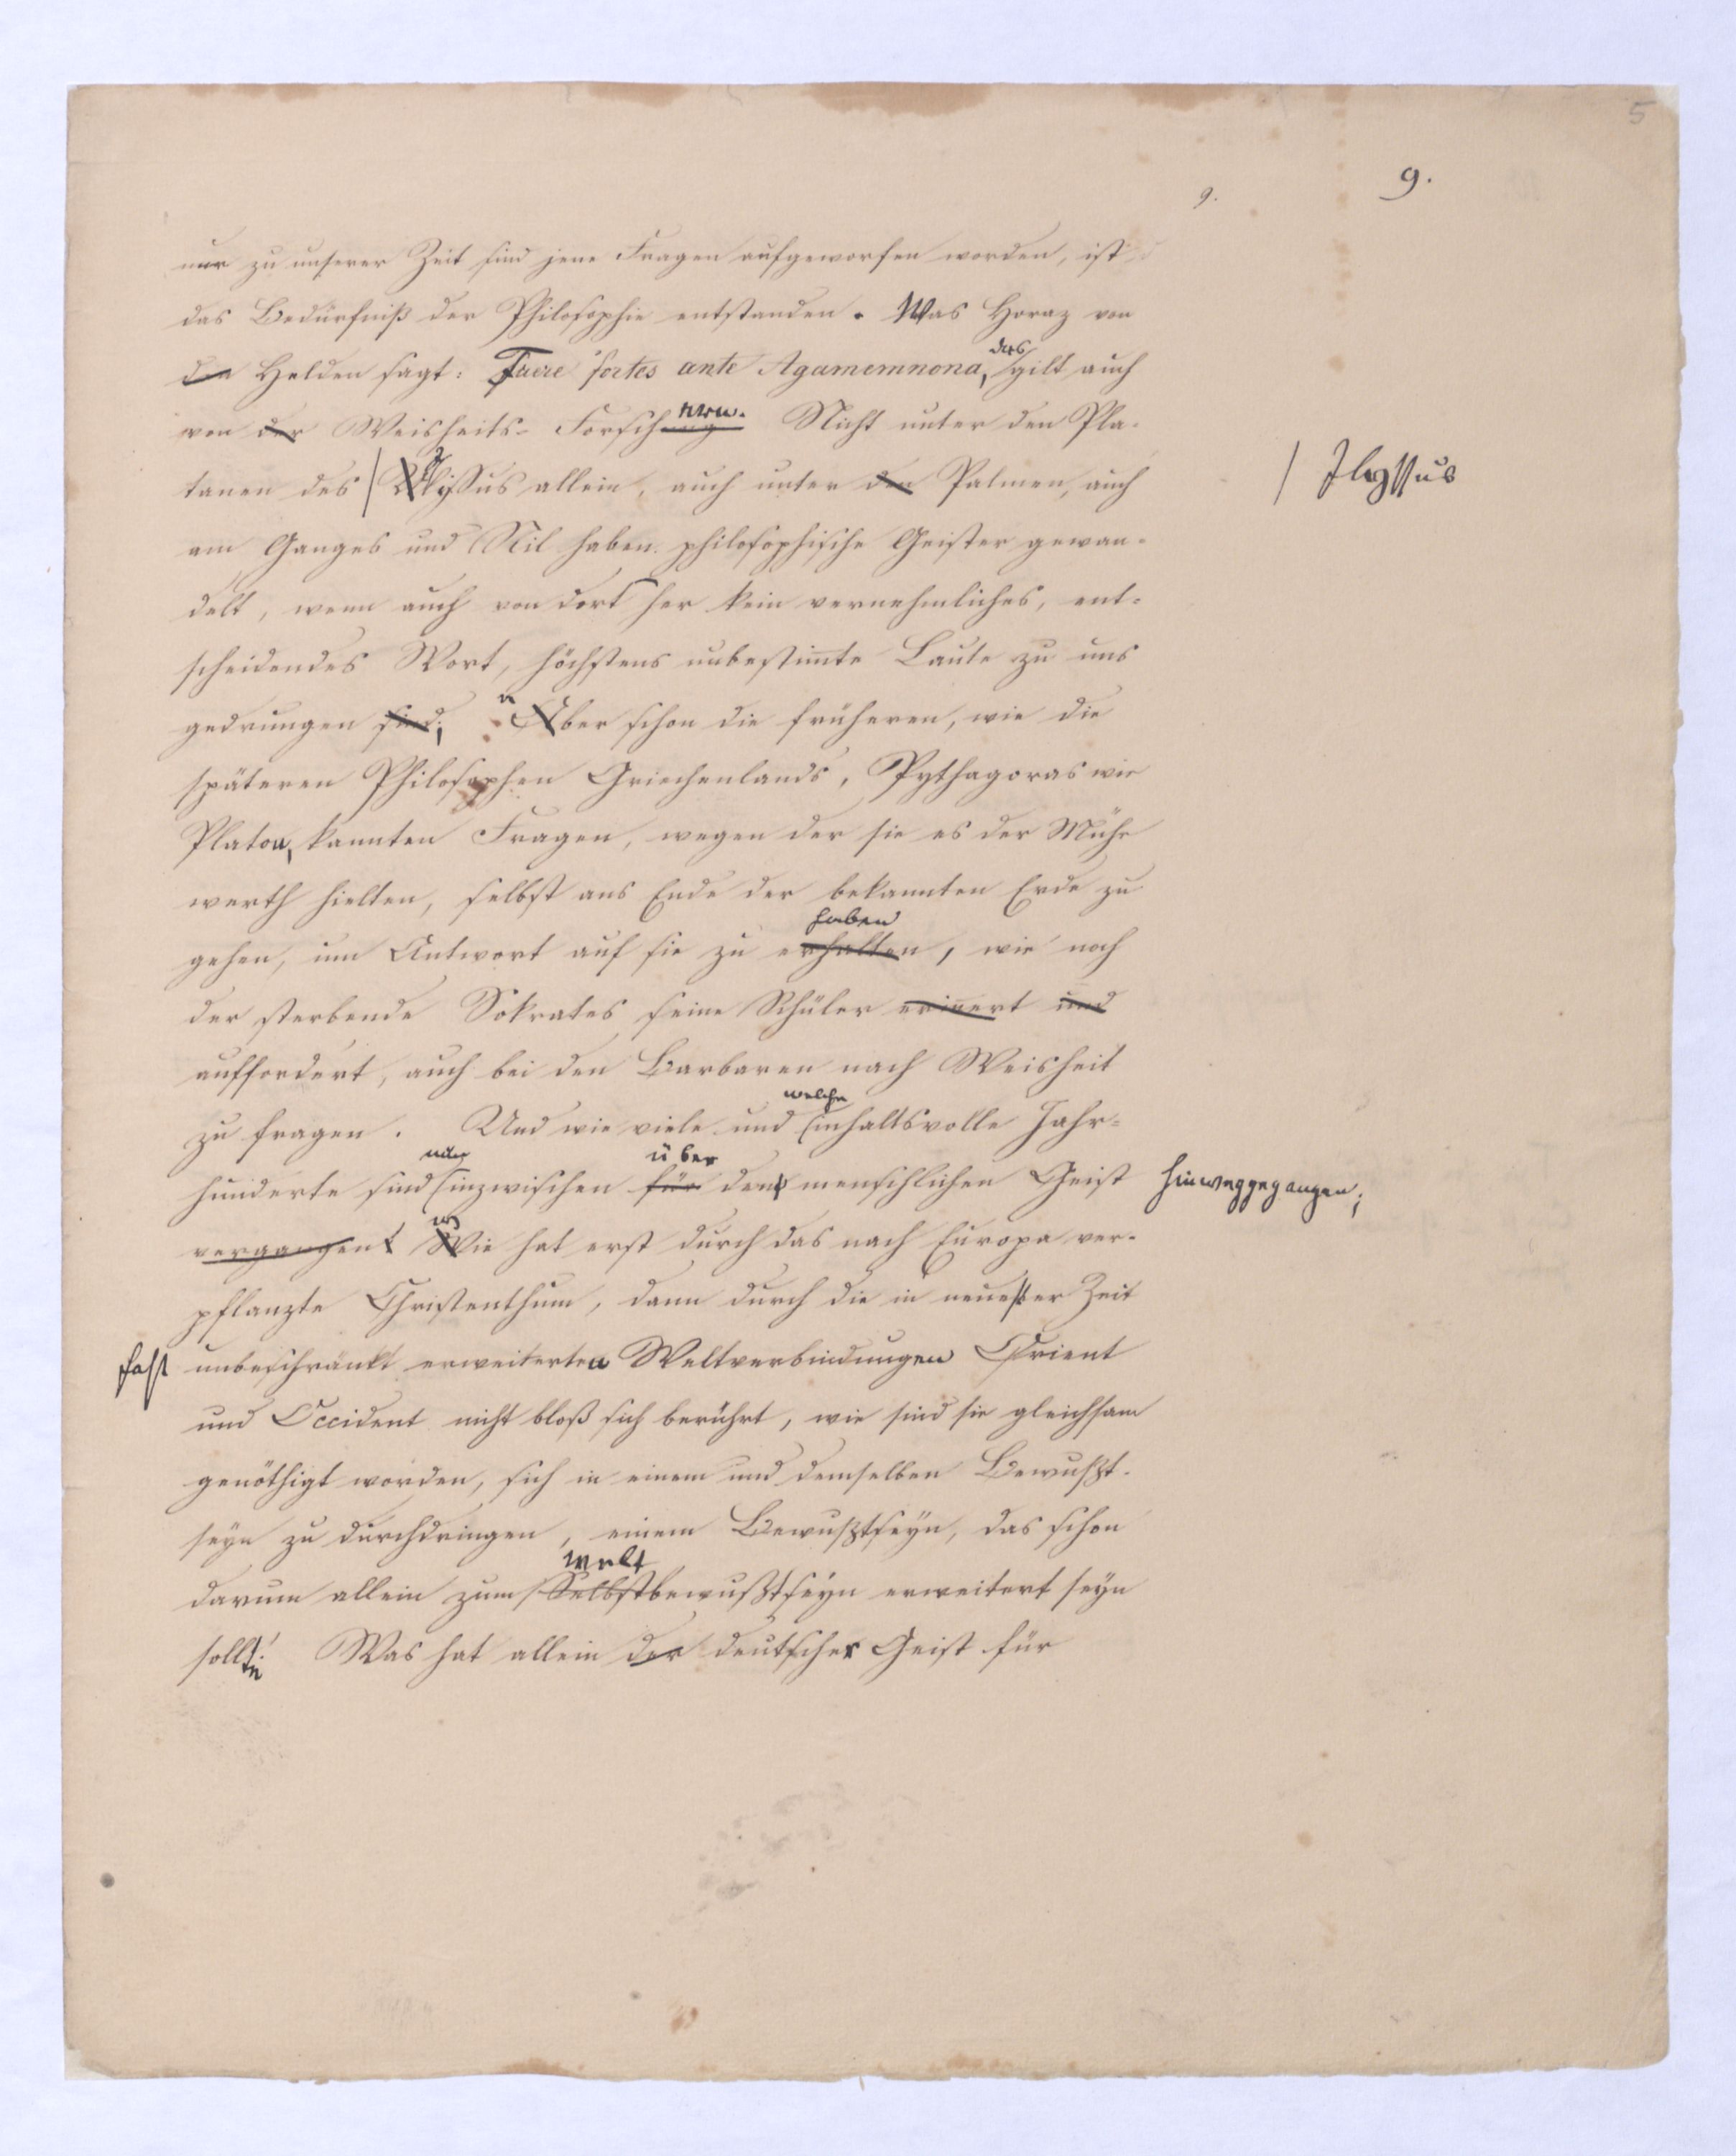 5
9.
9.
nur zu unserer Zeit sind jene Fragen aufgeworfen worden, ist
das Bedürfniß der Philosophie entstanden. Was Horaz von
den Helden sagt: Fuere fortes ante Agamemnona, das gilt auch
von der Weisheits-Forschung nrn. Nicht unter den Pla-
tanen des Ilyssus allein, auch unter den Palmen, auch
| Ilyssus
am Ganges und Nil haben philosophische Geister gewan-
delt, wenn auch von dort her kein vernehmliches, ent-
scheidendes Wort, höchstens unbestim̄te Laute zu uns
gedrungen sind; aber schon die früheren, wie die
späteren Philosophen Griechenlands, Pythagoras wie
Platon, kannten Fragen, wegen der sie es der Mühe
werth hielten, selbst ans Ende der bekannten Erde zu
haben
gehen, um Antwort auf sie zu erhalten, wie noch
der sterbende Sokrates seine Schüler erin̄ert und
auffordert, auch bei den Barbaren nach Weisheit
welche
zu fragen. Und wie viele und inhaltsvolle Jahr-
nun über
hunderte sind inzwischen für den menschlichen Geist hinweggegangen;
vergangen! Wie hat erst durch das nach Europa ver-
pflanzte Christenthum, dann durch die in neuester Zeit
fast unbeschränkt erweiterten Weltverbindungen Orient
und Occident nicht bloß sich berührt, wie sind sie gleichsam
genöthigt worden, sich in einem und demselben Bewußt-
seyn zu durchdringen, einem Bewußtseyn, das schon
Welt
darum allein zum Selbstbewußtseyn erweitert seyn
sollte! Was hat allein der deutscher Geist für